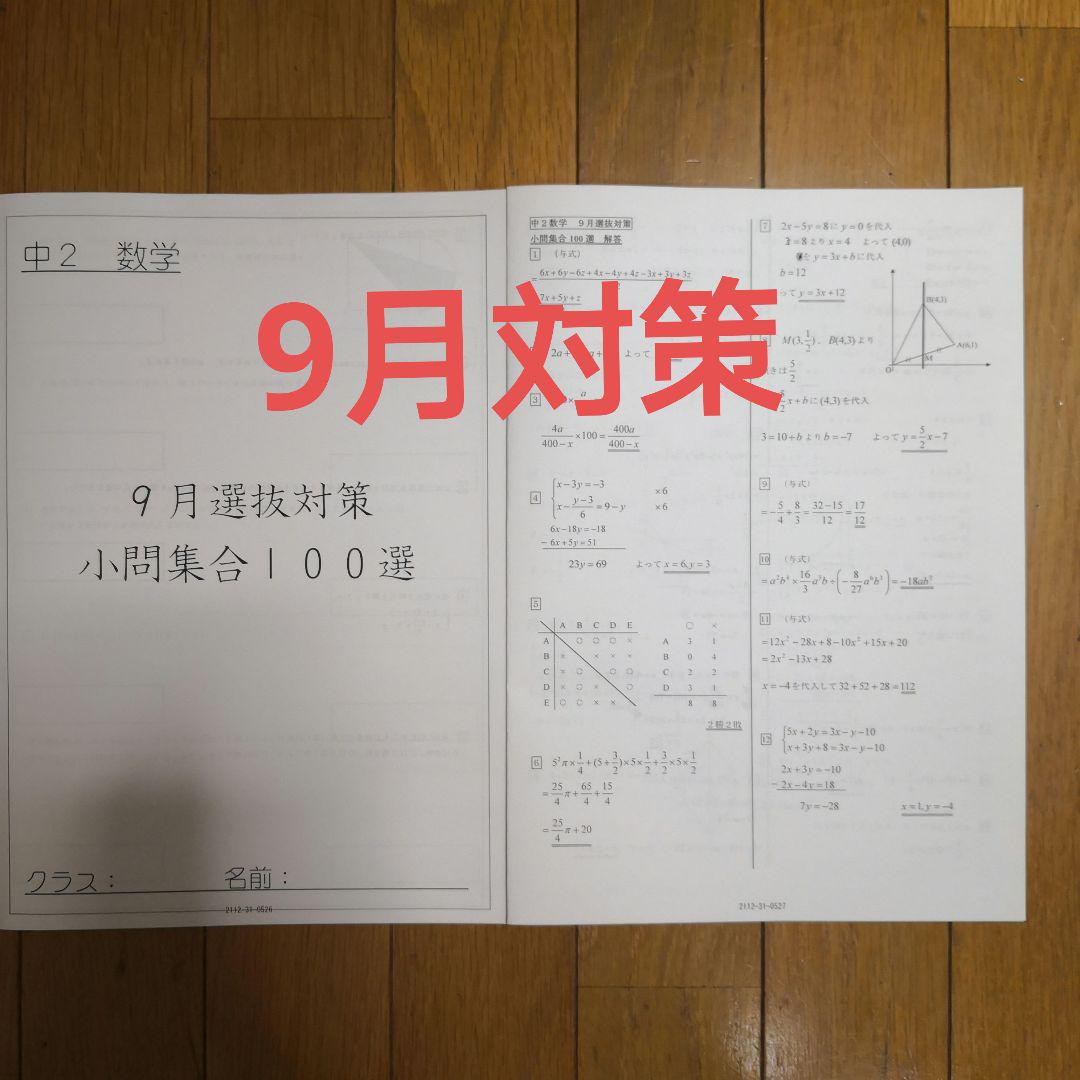 中２　数学
９月選抜対策
小問集合１００選
クラス：
名前：
2112-31-0526
9月対策
中２数学　９月選抜対策
小問集合 100 選　解答
1　（与式）
6x+6y−6z+4x−4y+4z−3x+3y+3z
7x+5y+z
2a+
よって
3
4a/(400−x)×100=400a/(400−x)
4
x−3y=−3 ×6
x−(y−3)/6=9−y ×6
6x−18y=−18
− 6x+5y=51
23y=69　よって x=6, y=3
5
A B C D E　○ ×
A　○ ○ ○ ×　A 3 1
B ×　× × ×　B 0 4
C × ○　○ ○　C 2 2
D × ○ ×　○　D 3 1
E ○ ○ × ×　8 8
２勝２敗
6　5²π×1/4+(5+3/2)×5×1/2+3/2×5×1/2
=25/4π+65/4+15/4
=25/4π+20
7　2x−5y=8 に y=0 を代入
=8 より x=4　よって (4,0)
を y=3x+b に代入
b=12
って y=3x+12
8　M(3,1/2)，B(4,3) より
きは 5/2
x+b に (4,3) を代入
3=10+b より b=−7　よって y=5/2x−7
B(4,3)
A(6,1)
M
O
9　（与式）
=−5/4+8/3=(32−15)/12=17/12
10　（与式）
=a²b⁴×16/3a⁵b÷(−8/27a⁶b³)=−18ab²
11　（与式）
=12x²−28x+8−10x²+15x+20
=2x²−13x+28
x=−4 を代入して 32+52+28=112
12
5x+2y=3x−y−10
x+3y+8=3x−y−10
2x+3y=−10
− 2x−4y=18
7y=−28　x=1, y=−4
2112-31-0527